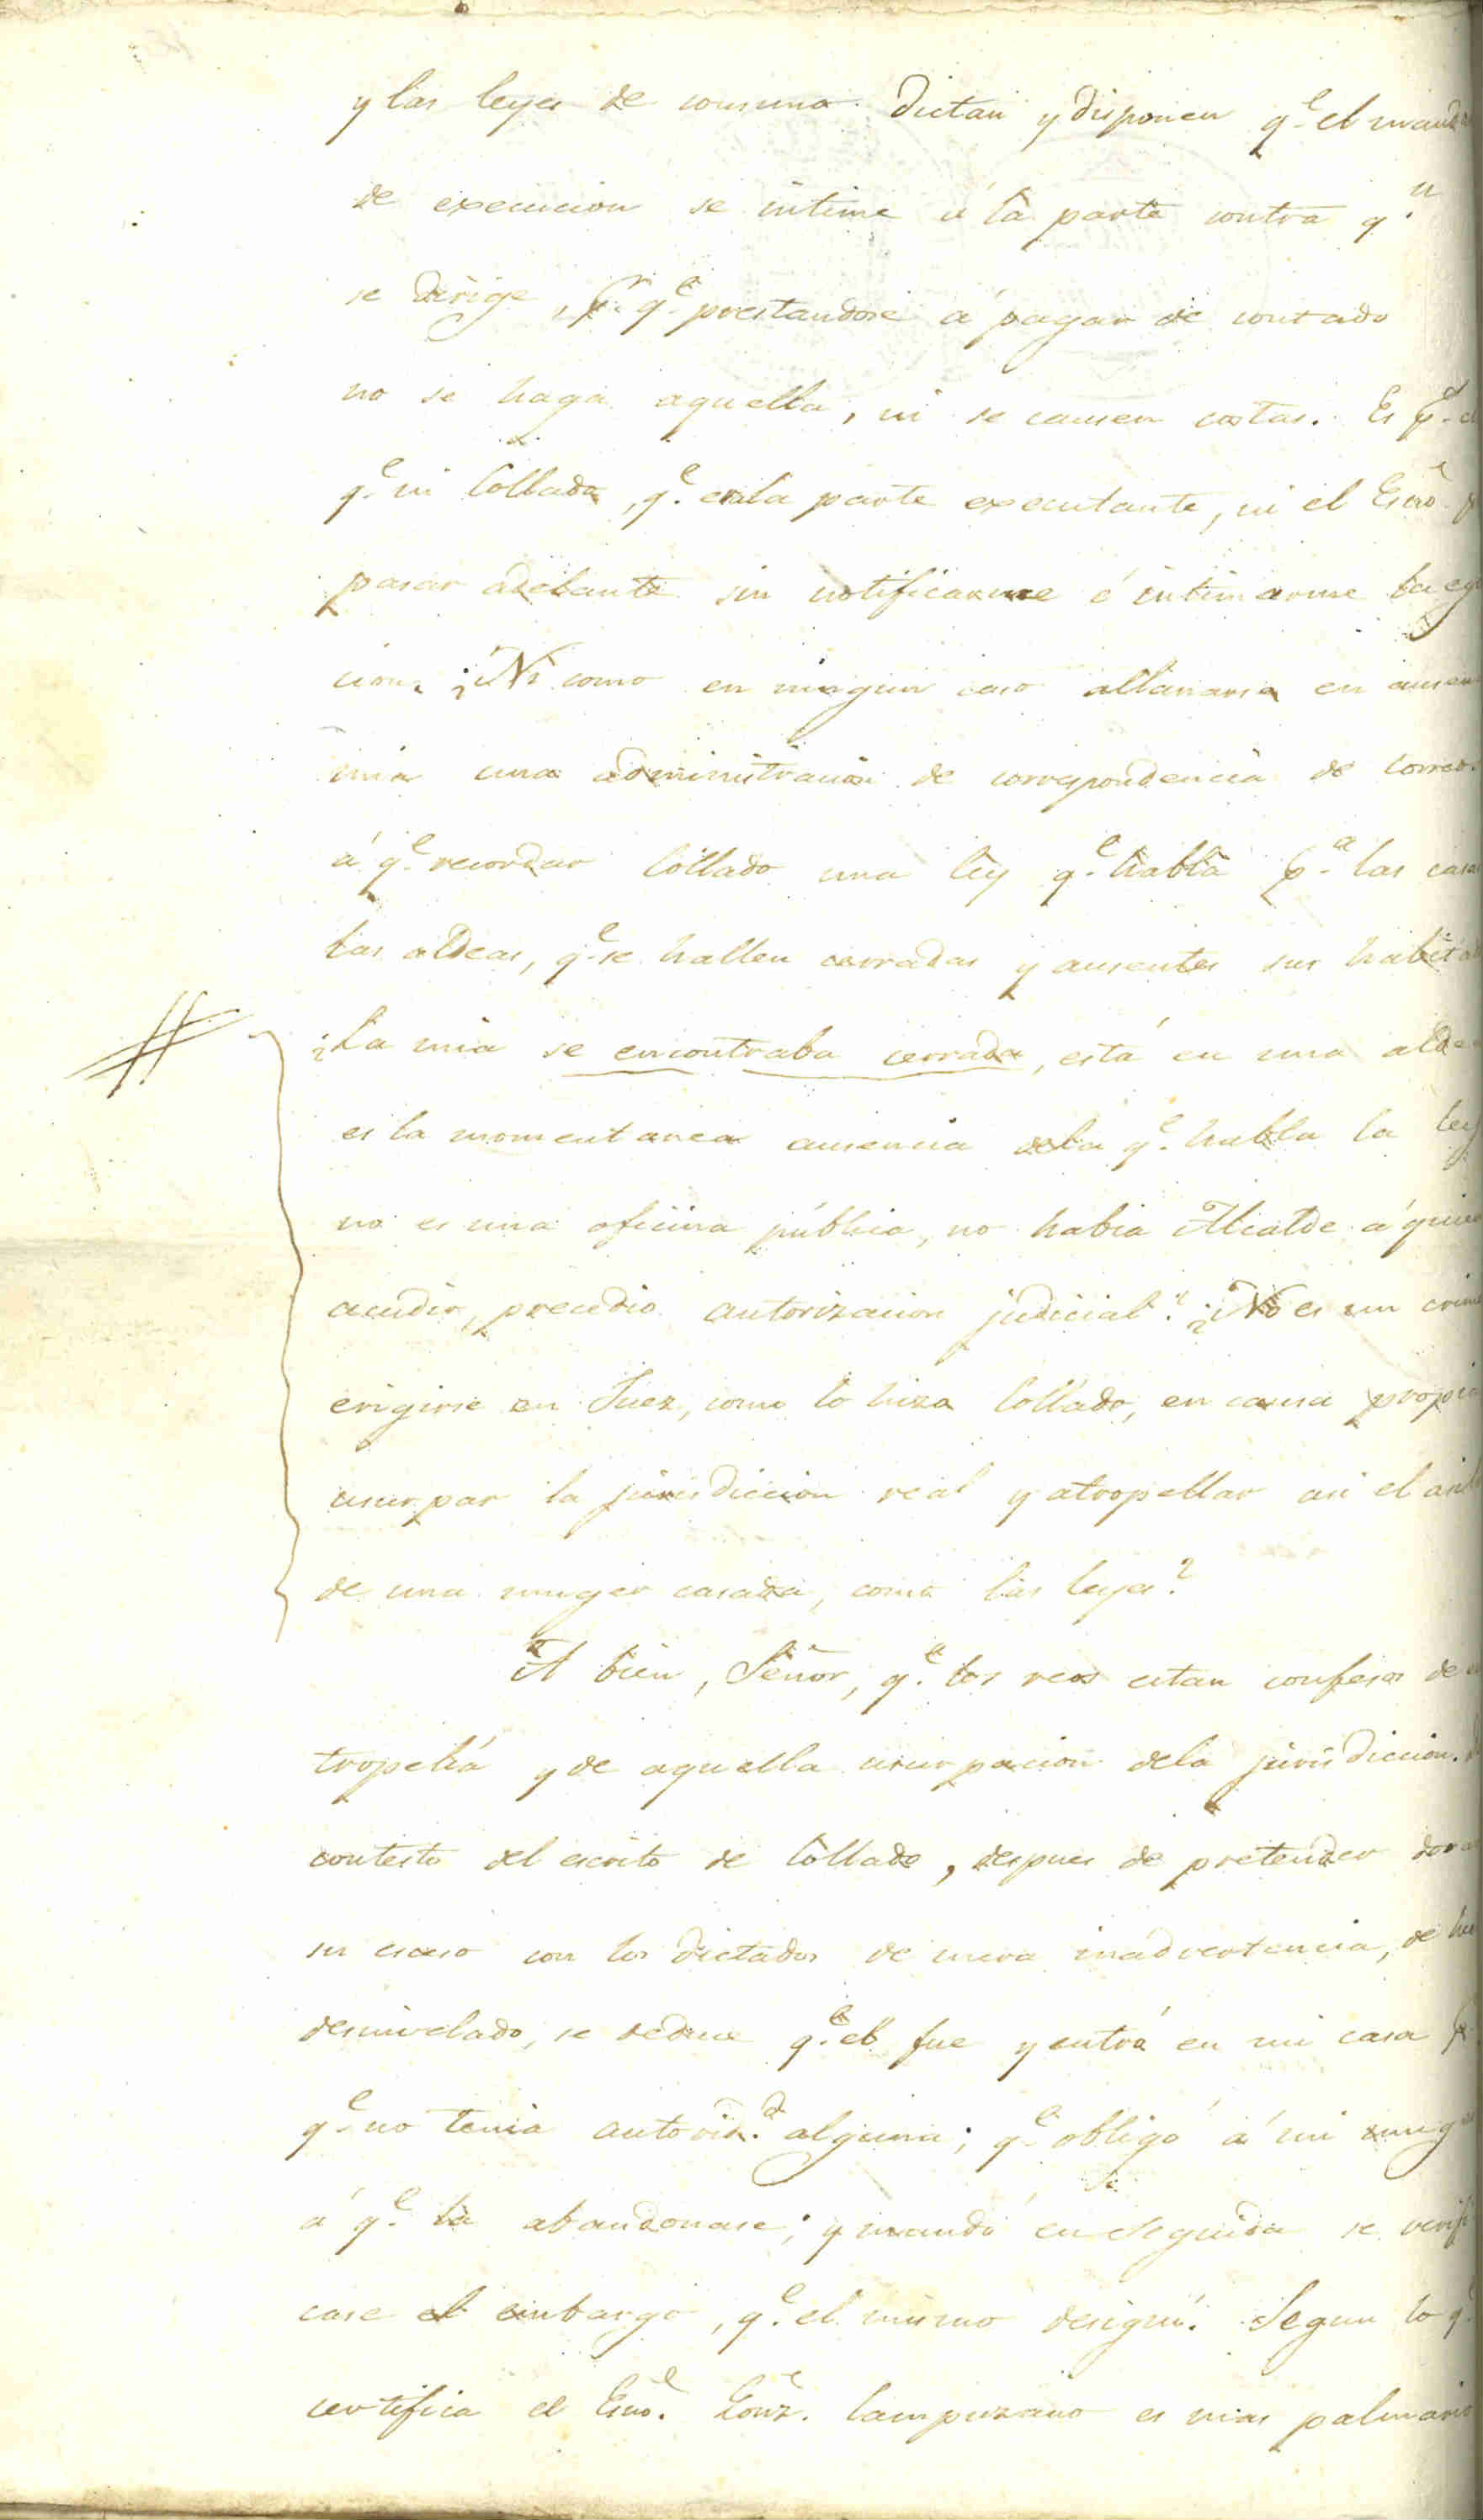 y las leyes de consuno dictan y disponen q.e el mand
de execucion se intime á la parte contra q.n
se dirige, p.r q.e prestandose á pagar de contado
no se haga aquella, ni se causen costas. Es p.r
q.e ni Collado, q.e era la parte executante, ni el Esno
pasar adelante sin notificarme é intimarme la eje
cion. ¿Ni como en ningun caso allanarse en ausen
mia una administracion de correspondencia de correos
á q.e recordar Collado una ley q.e habla p.a las casas
las aldeas, q.e se hallen cerradas y ausentes sus habita
¿La mia se encontraba cerrada, está en una alde
es la momentanea ausencia dela q.e habla la ley
no es una oficina pública, no habia Alcalde á quien
acudir, precedio autorizacion judicial? ¿No es un crimen
erigirse en Juez, como lo hizo Collado, en causa propia
usurpar la jurisdiccion real y atropellar asi el asilo
de una muger casada, como las leyes?
A bien, Señor, q.e los reos estan confesos de
tropelía y de aquella usurpacion dela jurisdiccion.
contesto del escrito de Collado, despues de pretender dora
su esceso con los dictados de mera inadvertencia, de
desnivelado, se deduce q.e el fue y entró en mi casa p.
q.e no tenia autorid.d alguna; q.e obligó á mi mug
á q.e la abandonase; y mandó en seguida se verifi
case el embargo, q.e el mismo designó. Segun lo q.e
certifica el Esno. Gonz. Campuzano es mas palmario